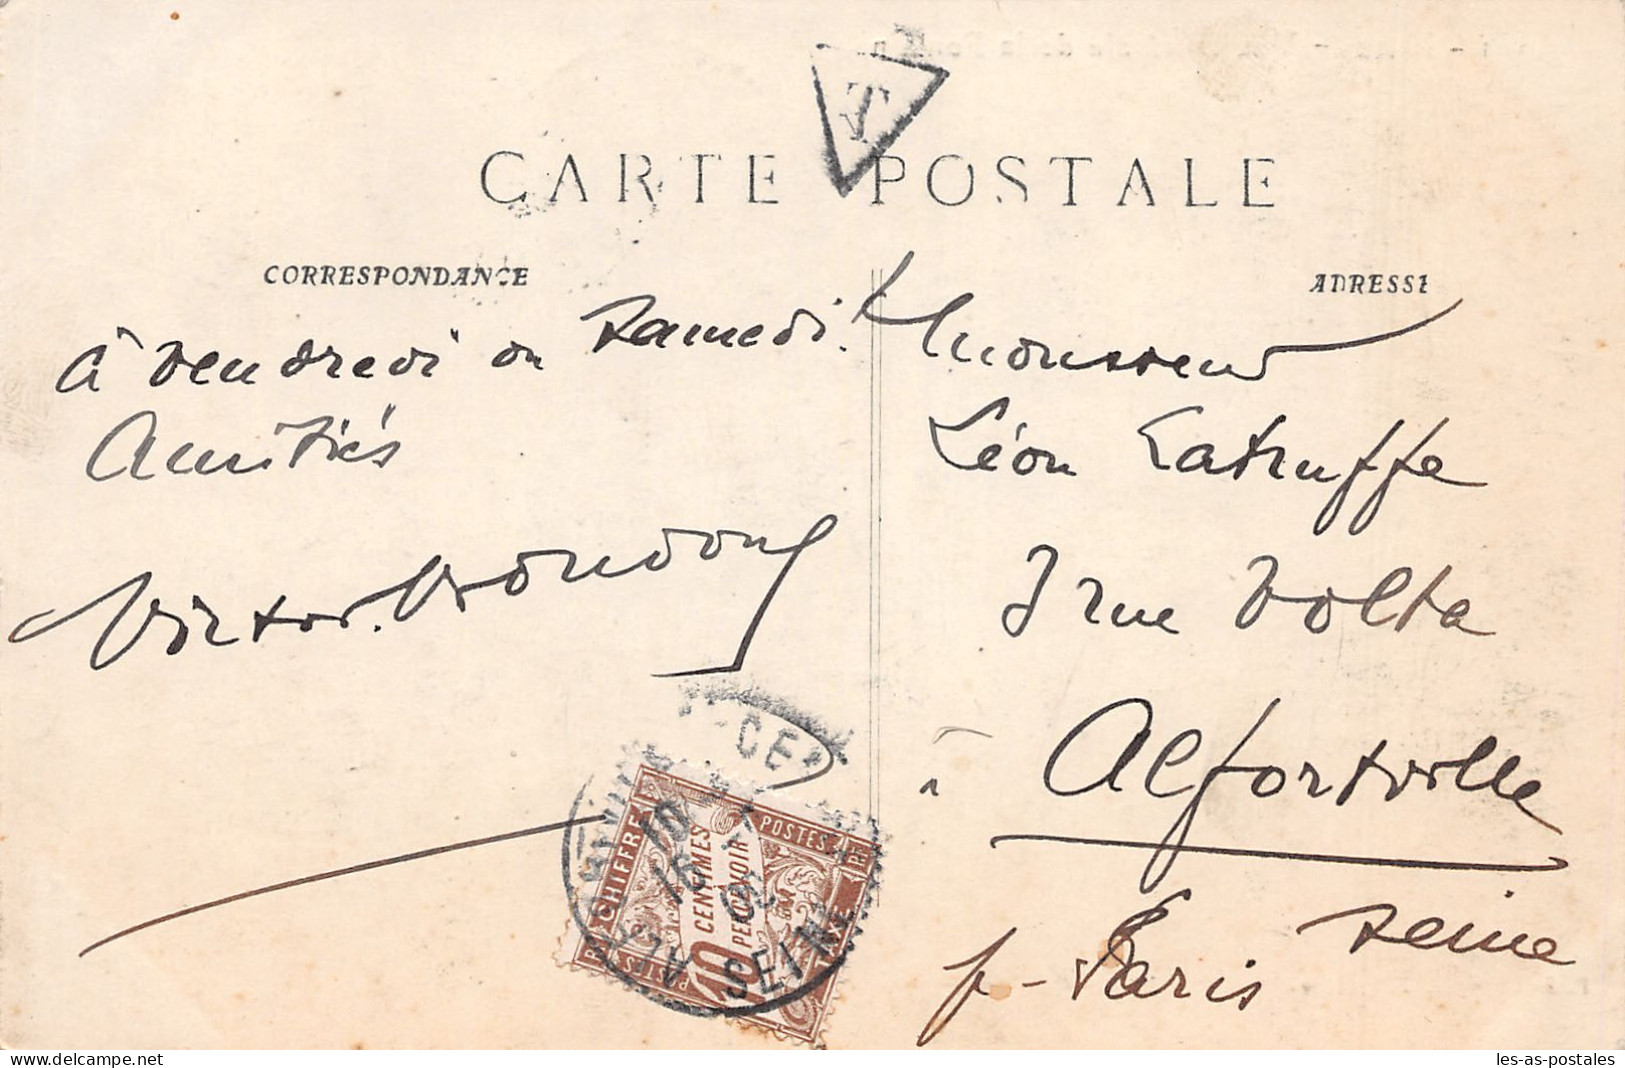 T
CARTE POSTALE
CORRESPONDANCE
à vendredi ou samedi!
Amitiés
ADRESSE
Monsieur
Léon Latruffe
7 rue Volta
à Alfortville
Seine
p- Paris
POSTES RF
CHIFFRE TAXE
10 CENTIMES
PERCEVOIR
SEINE
delcampe.net
les-as-postales